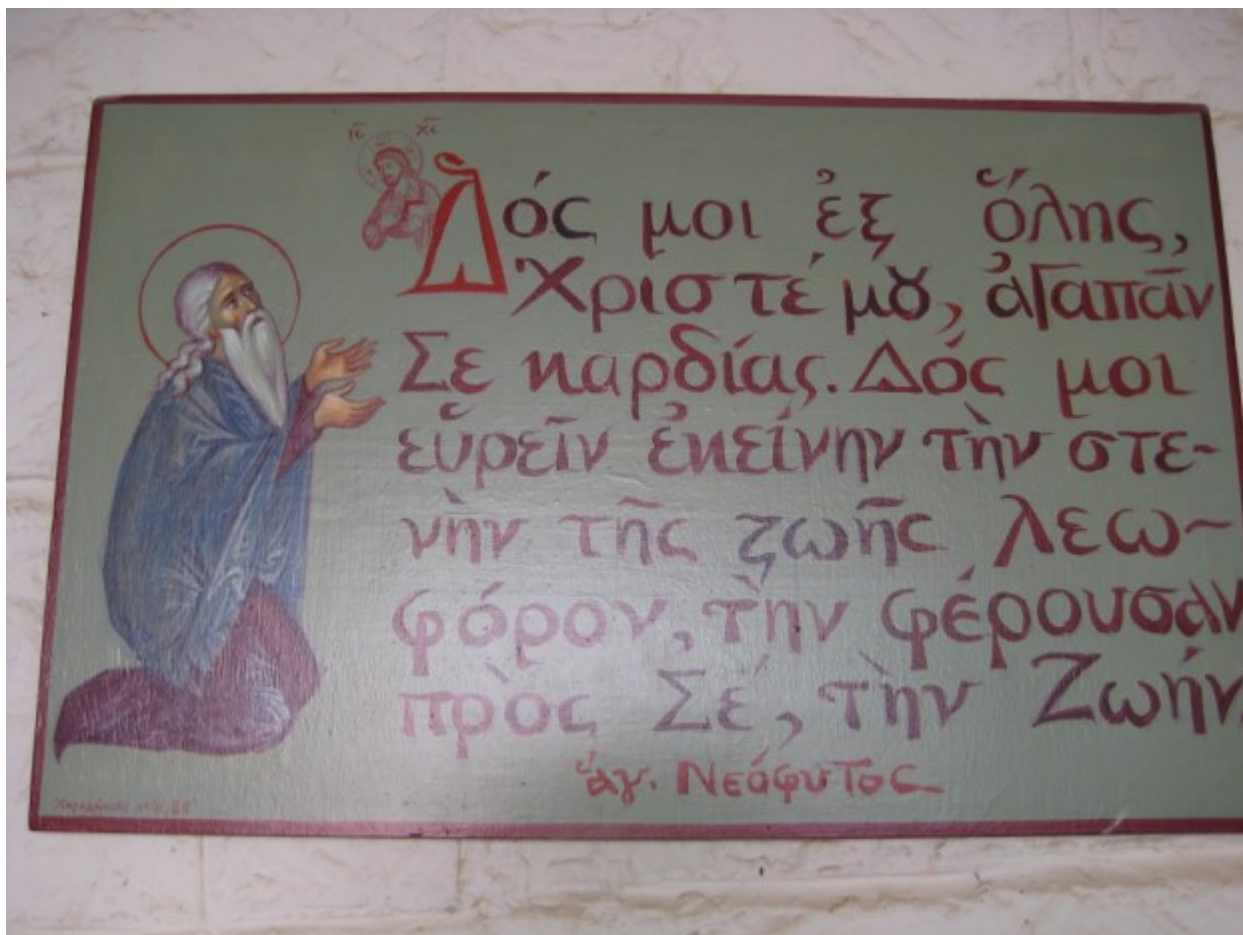 ΙϹ ΧϹ
Δός μοι ἐξ ὅλης,
Χριστέ μȣ, ἀγαπᾶν
Σε καρδίας. Δός μοι
εὑρεῖν ἐκείνην τὴν στε-
νὴν τῆς ζωῆς λεω-
φόρον, τὴν φέρουσαν
πρὸς Σέ, τὴν Ζωήν.
ἁγ. Νεόφυτος